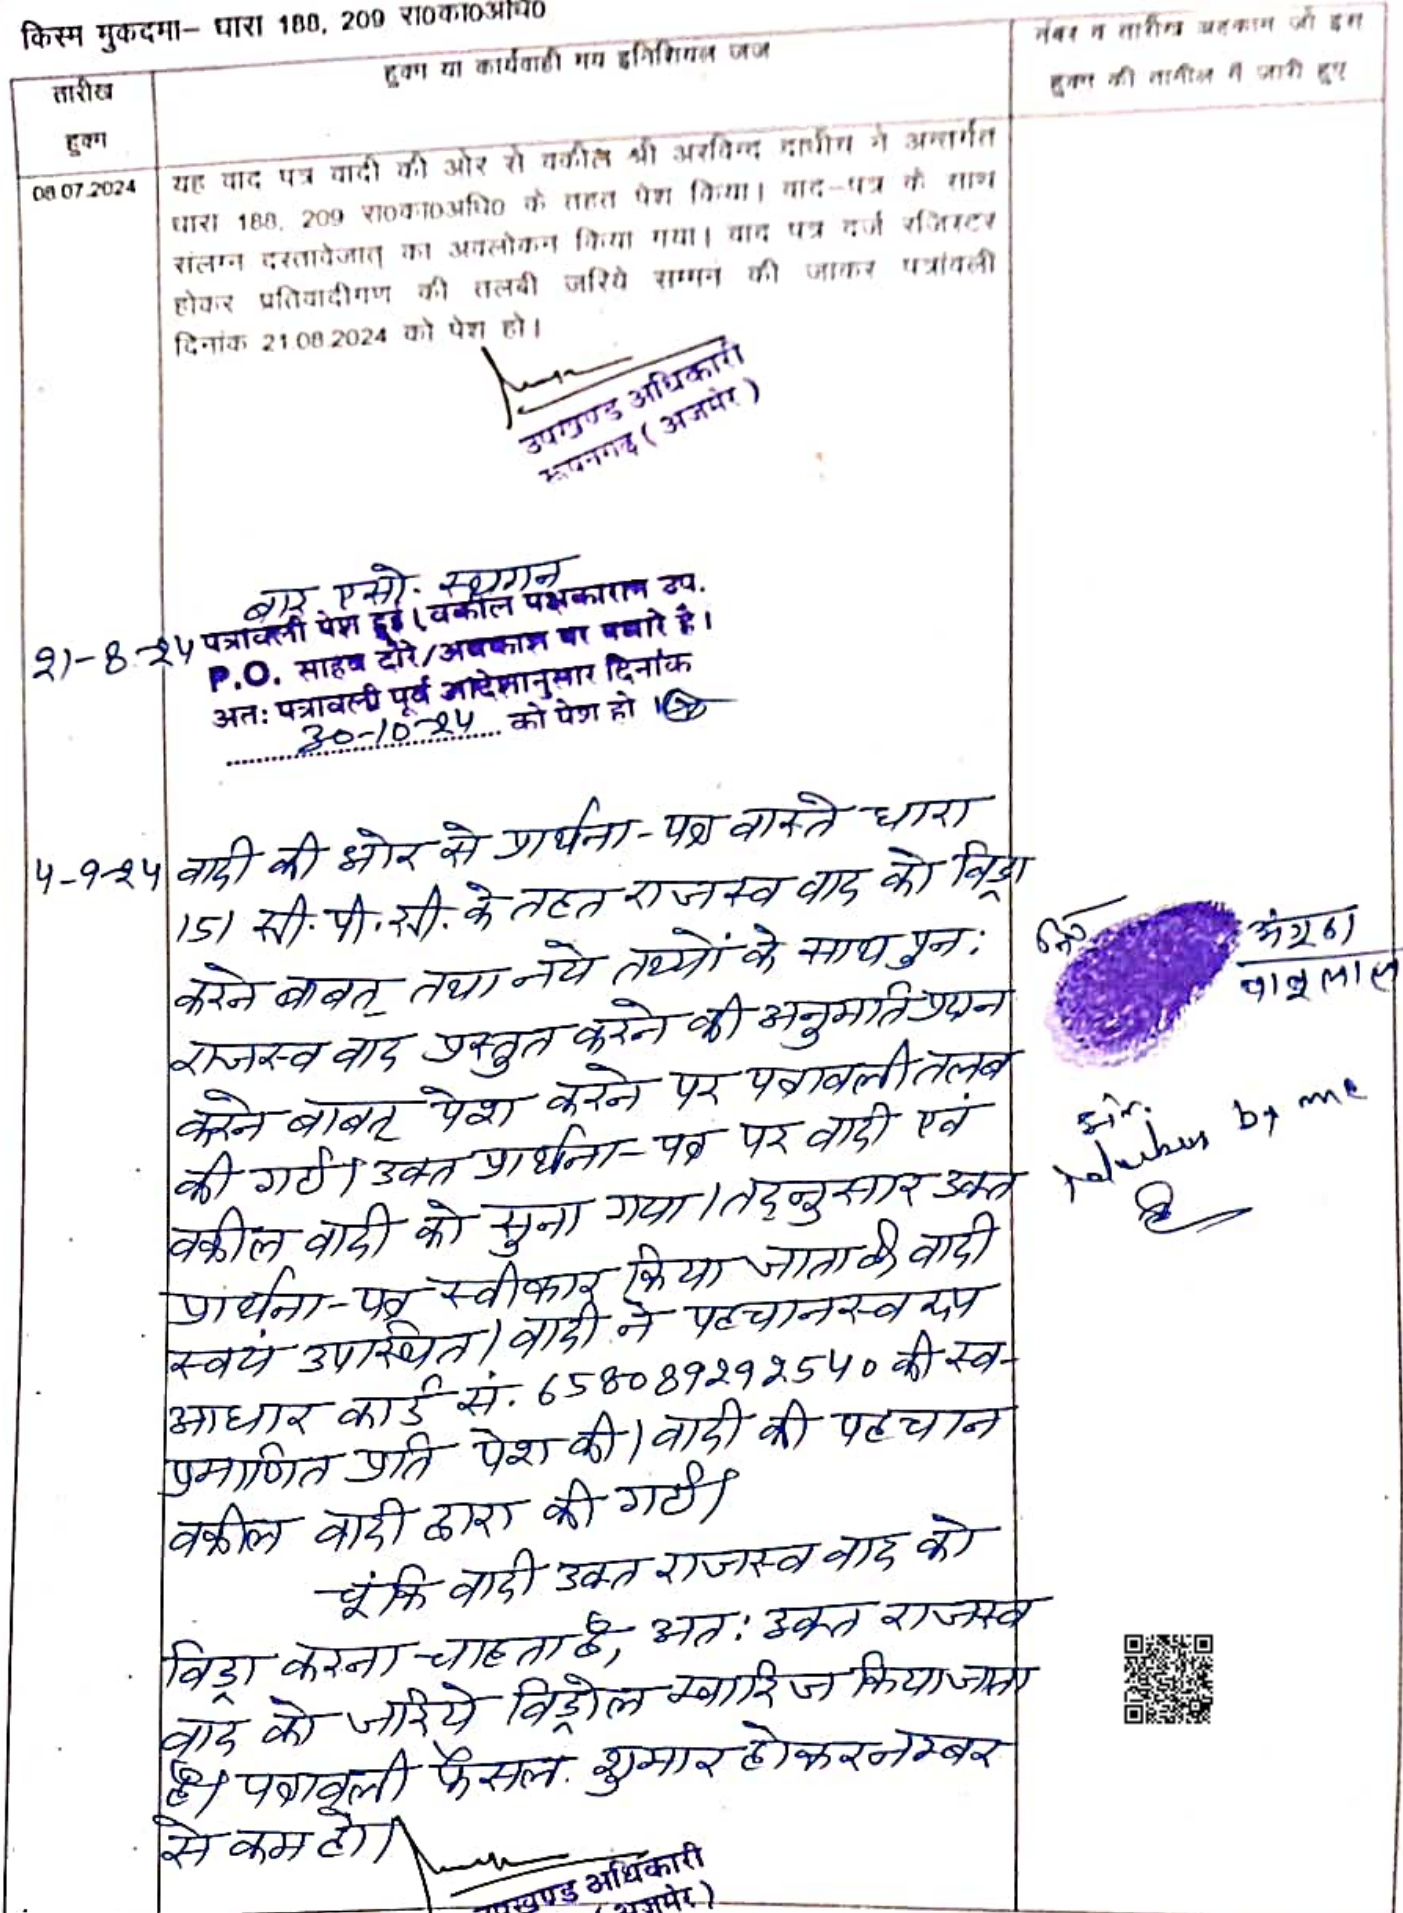 किस्म मुकदमा– धारा 188, 209 रा०का०अधि०
तारीख
हुक्म
हुक्म या कार्यवाही मय इनिशियल जज
नंबर व तारीख अहकाम जो इस
हुक्म की तामील में जारी हुए
08.07.2024
यह वाद पत्र वादी की ओर से वकील श्री अरविन्द दाधीच ने अन्तर्गत
धारा 188, 209 रा०का०अधि० के तहत पेश किया। वाद–पत्र के साथ
संलग्न दस्तावेजात् का अवलोकन किया गया। वाद पत्र दर्ज रजिस्टर
होकर प्रतिवादीगण की तलबी जरिये सम्मन की जाकर पत्रांवली
दिनांक 21.08.2024 को पेश हो।
उपखण्ड अधिकारी
रूपनगढ़ (अजमेर)
बार एसो. स्थगन
21-8-24 पत्रावली पेश हुई। वकील पक्षकारान उप.
P.O. साहब दौरे/अवकाश पर पधारे है।
अतः पत्रावली पूर्व आदेशानुसार दिनांक
30-10-24 को पेश हो।
4-9-24 वादी की ओर से प्रार्थना-पत्र वास्ते धारा
151 सी.पी.सी. के तहत राजस्व वाद को विड्रा
करने बाबत् तथा नये तथ्यों के साथ पुनः
राजस्व वाद प्रस्तुत करने की अनुमति प्रदान
करने बाबत् पेश करने पर पत्रावली तलब
की गई। उक्त प्रार्थना-पत्र पर वादी एवं
वकील वादी को सुना गया। तद्नुसार उक्त
प्रार्थना-पत्र स्वीकार किया जाता है। वादी
स्वयं उपस्थित। वादी ने पहचान स्वरूप
आधार कार्ड सं. 658089292540 की स्व-
प्रमाणित प्रति पेश की। वादी की पहचान
वकील वादी द्वारा की गई।
चूंकि वादी उक्त राजस्व वाद को
विड्रा करना चाहता है, अतः उक्त राजस्व
वाद को जरिये विड्रोल खारिज किया जाता
है। पत्रावली फैसल शुमार होकर नम्बर
से कम हो।
उपखण्ड अधिकारी
(अजमेर)
अंगूठा
बाबूलाल
by me